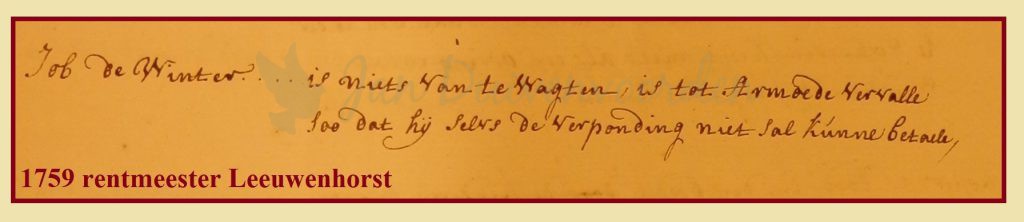 Job de Winter. . . . . is niets van te wagten, is tot Armoede vervalle
soo dat hij selvs de verponding niet sal kúnne betaele,
1759 rentmeester Leeuwenhorst